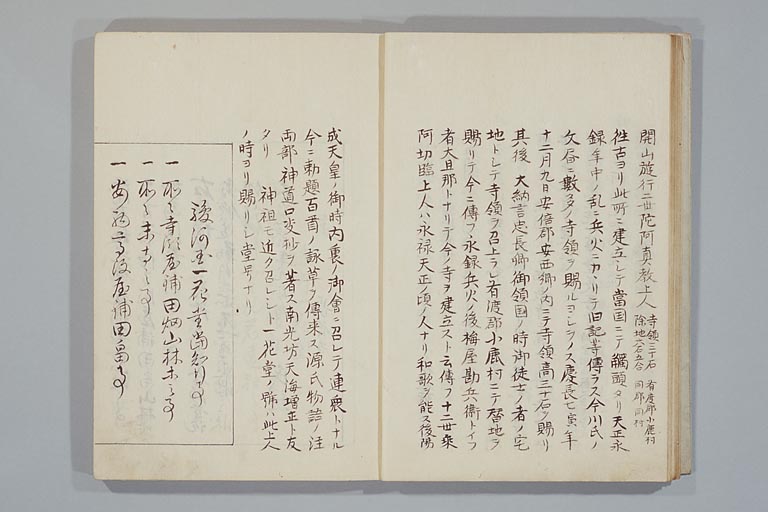 開山遊行二世陀阿真教上人 寺領三十石 有度郡小鹿村
除地六石五合 同郡同村
往古ヨリ此所ニ建立シテ當国ニテ觸頭タリ天正永
録年中ノ乱ニ兵火ニカヽリテ旧記等傳ラス今川氏ノ
文昏ニ數多ノ寺領ヲ賜ルヨシヲノス慶長七寅年
十二月九日安倍郡安西郷ノ内ニテ寺領高三十石ヲ賜リ
其後 大納言忠長卿御領国ノ時御徒士ノ者ノ宅
地トシテ寺領ヲ召上ラレ有渡郡小鹿村ニテ替地ヲ
賜リテ今ニ傳フ永録兵火ノ後梅屋勘兵衛トイフ
者大旦那トナリテ今ノ寺ヲ建立スト云傳フ十二世來
阿切臨上人ハ永禄天正ノ頃ノ人ナリ和歌ヲ能ス後陽
成天皇ノ御時内裏ノ御會ニ召レテ連衆トナル
今ニ勅題百首ノ詠草ヲ傳来ス源氏物語ノ注
両部神道口决抄ヲ著ス南光坊天海増正ト友
タリ 神祖モ近ク召レシト一花堂ノ号ハ此上人
ノ時ヨリ賜リシ堂号ナリ
駿河国一花堂
一 寺領屋浦田畑山林
一 末寺
一 屋浦田畠